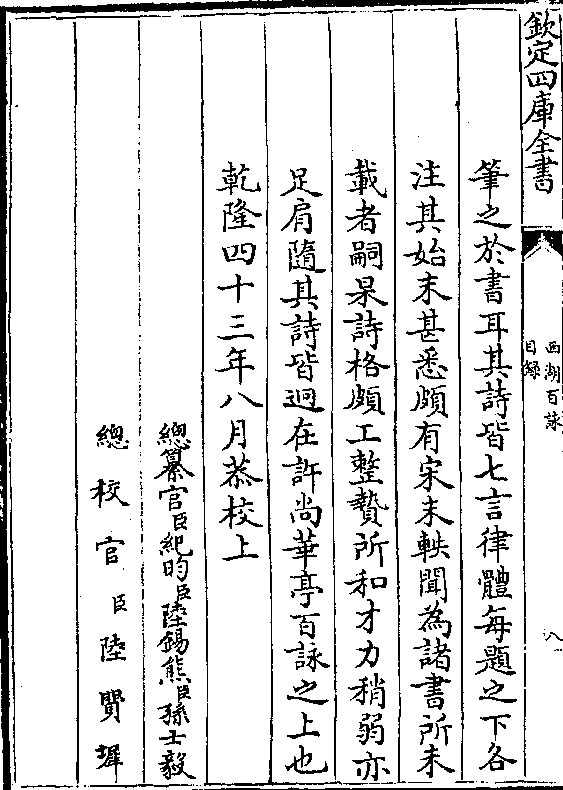 欽定四庫全書
西湖百詠
目錄
八
筆之於書耳其詩皆七言律體每題之下各
注其始末甚悉頗有宋末軼聞為諸書所未
載者嗣杲詩格頗工整贄所和才力稍弱亦
足肩隨其詩皆迥在許尚華亭百詠之上也
乾隆四十三年八月恭校上
總纂官臣紀昀臣陸錫熊臣孫士毅
總校官臣陸費墀